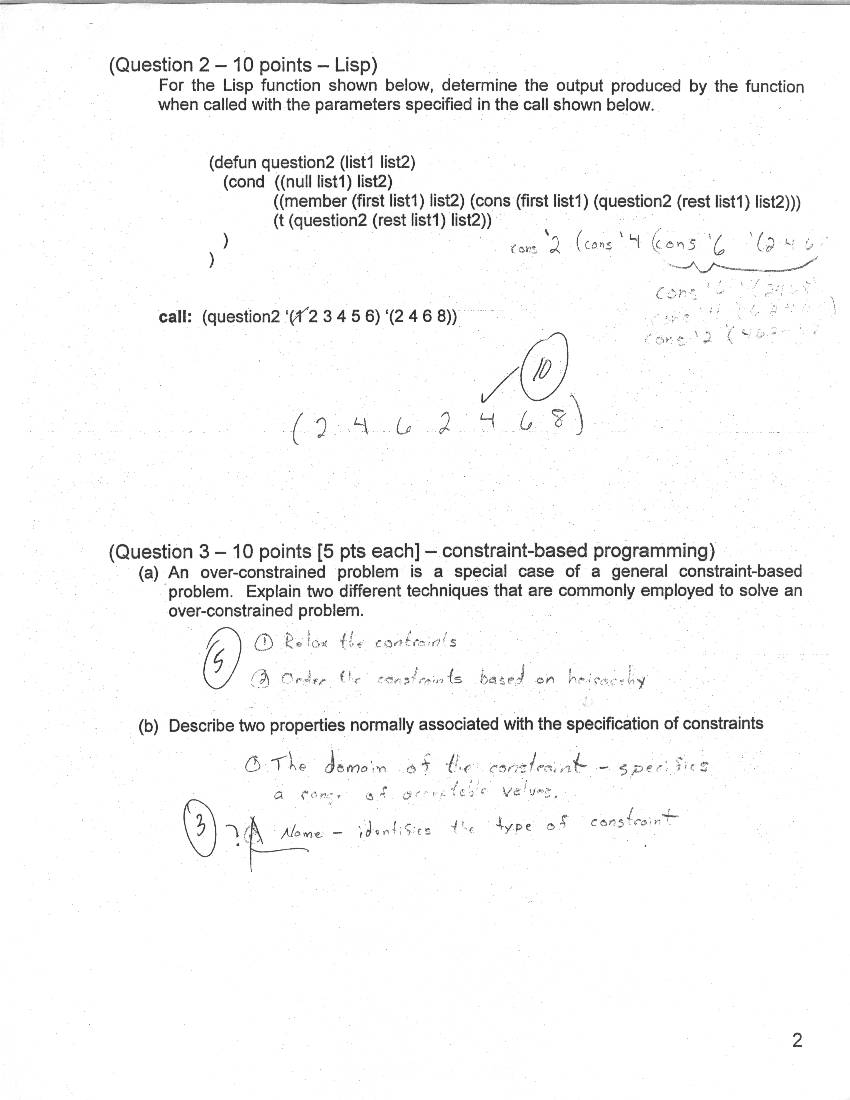 (Question 2 – 10 points – Lisp)
For the Lisp function shown below, determine the output produced by the function
when called with the parameters specified in the call shown below.
(defun question2 (list1 list2)
(cond ((null list1) list2)
((member (first list1) list2) (cons (first list1) (question2 (rest list1) list2)))
(t (question2 (rest list1) list2))
)
)
cons '2 (cons '4 (cons '6 '(2 4 6
cons '6 '(2468
cons '2 (
call: (question2 '(1 2 3 4 5 6) '(2 4 6 8))
10
(2 4 6 2 4 6 8)
(Question 3 – 10 points [5 pts each] – constraint-based programming)
(a) An over-constrained problem is a special case of a general constraint-based
problem. Explain two different techniques that are commonly employed to solve an
over-constrained problem.
5
① Relax the contraints
② Order the constraints based on heirarchy
(b) Describe two properties normally associated with the specification of constraints
① The domain of the constraint – specifies
a range of values.
3
? Name – identifies the type of constraint
2